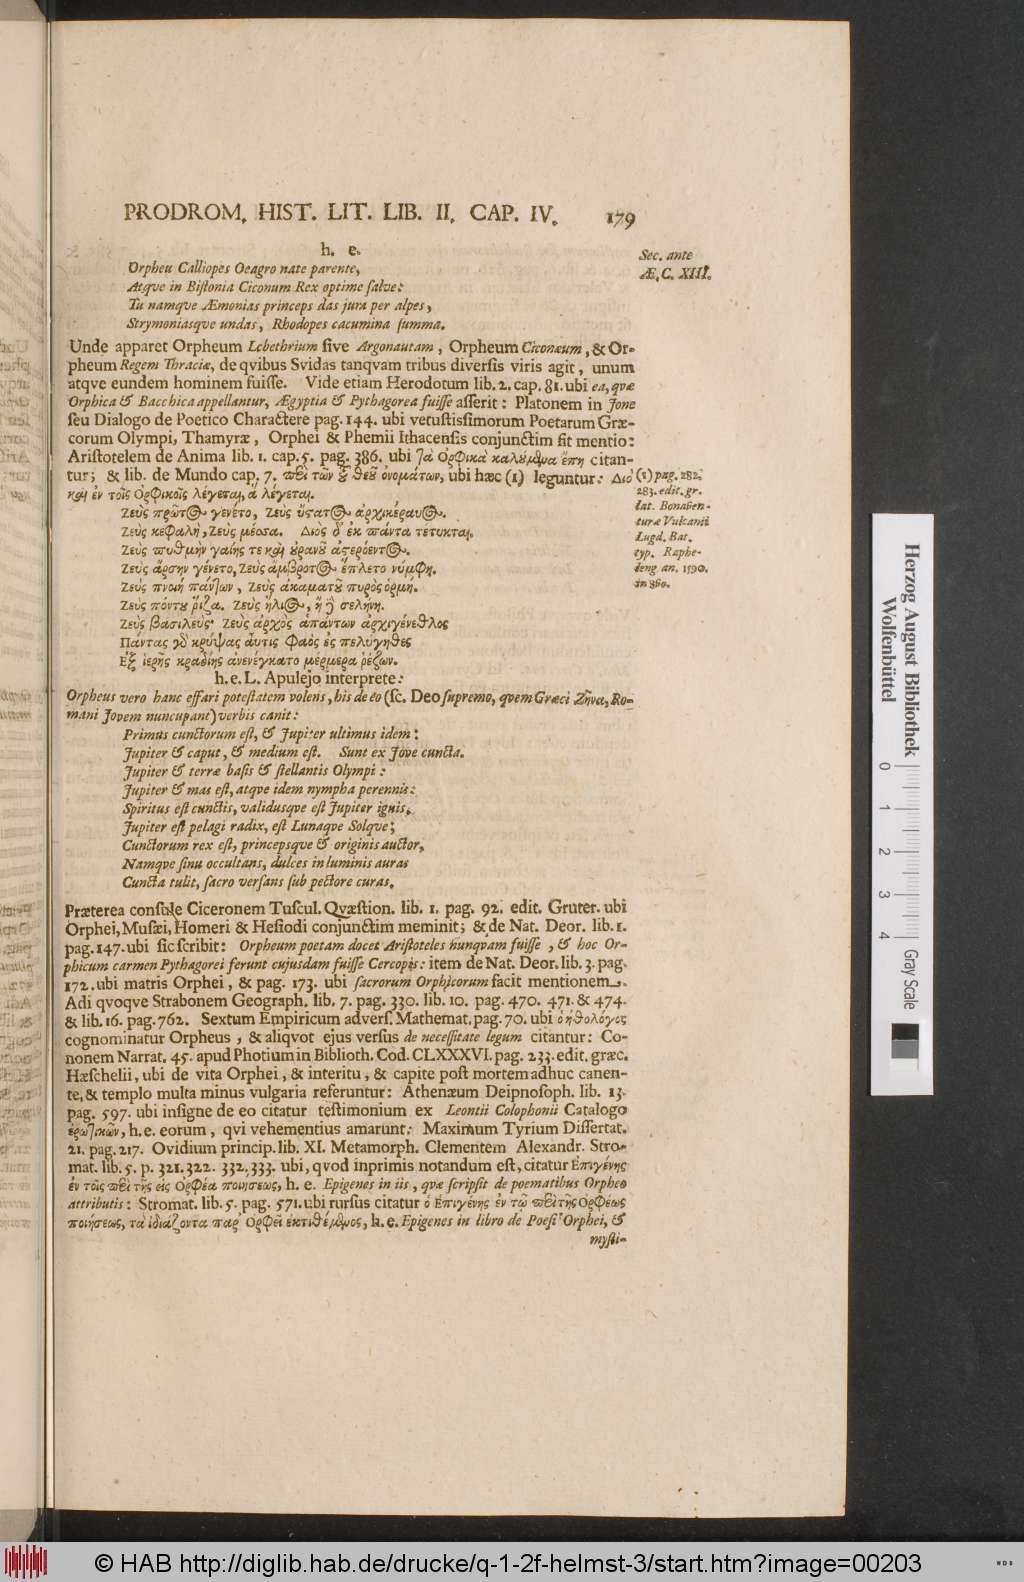 PRODROM. HIST. LIT. LIB. II. CAP. IV. 179
h. e.
Sec. ante
Æ. C. XIII.
Orpheu Calliopes Oeagro nate parente,
Atqve in Bistonia Ciconum Rex optime salve:
Tu namqve Æmonias princeps das jura per alpes,
Strymoniasqve undas, Rhodopes cacumina summa.
Unde apparet Orpheum Lebethrium sive Argonautam, Orpheum Ciconæum, & Or-
pheum Regem Thraciæ, de qvibus Svidas tanqvam tribus diversis viris agit, unum
atqve eundem hominem fuisse. Vide etiam Herodotum lib. 2. cap. 81. ubi ea, qvæ
Orphica & Bacchica appellantur, Ægyptia & Pythagorea fuisse asserit: Platonem in Jone
seu Dialogo de Poetico Charactere pag. 144. ubi vetustissimorum Poetarum Græ-
corum Olympi, Thamyræ, Orphei & Phemii Ithacensis conjunctim fit mentio:
Aristotelem de Anima lib. 1. cap. 5. pag. 386. ubi τὰ Ορφικὰ καλούμενα ἔπη citan-
tur; & lib. de Mundo cap. 7. περὶ τῶν τοῦ θεοῦ ὀνομάτων, ubi hæc (1) leguntur: Διὸ
καὶ ἐν τοῖς Ορφικοῖς λέγεται, ἃ λέγεται.
(1) pag. 282.
283. edit. gr.
lat. Bonaven-
turæ Vulcanii
Lugd. Bat.
typ. Raphe-
leng an. 1590.
in 8vo.
Ζεὺς πρῶτος γένετο, Ζεὺς ὕστατος ἀρχικέραυνος.
Ζεὺς κεφαλὴ, Ζεὺς μέσσα. Διὸς δ' ἐκ πάντα τέτυκται.
Ζεὺς πυθμὴν γαίης τε καὶ οὐρανοῦ ἀστερόεντος.
Ζεὺς ἄρσην γένετο, Ζεὺς ἄμβροτος ἔπλετο νύμφη.
Ζεὺς πνοιὴ πάντων, Ζεὺς ἀκαμάτου πυρὸς ὁρμή.
Ζεὺς πόντου ῥίζα. Ζεὺς ἥλιος, ἠδὲ σελήνη.
Ζεὺς βασιλεὺς· Ζεὺς ἀρχὸς ἁπάντων ἀρχιγένεθλος
Πάντας γὸ κρύψας αὖτις φαὸς ἐς πελυγηθὲς
Εξ ἱερῆς κραδίης ἀνενέγκατο μέρμερα ῥέζων.
h. e. L. Apulejo interprete:
Orpheus vero hanc effari potestatem volens, his de eo (sc. Deo supremo, qvem Græci Ζῆνα, Ro-
mani Jovem nuncupant) verbis canit:
Primus cunctorum est, & Jupiter ultimus idem:
Jupiter & caput, & medium est. Sunt ex Jove cuncta.
Jupiter & terræ basis & stellantis Olympi:
Jupiter & mas est, atqve idem nympha perennis:
Spiritus est cunctis, validusqve est Jupiter ignis.
Jupiter est pelagi radix, est Lunaqve Solqve;
Cunctorum rex est, princepsqve & originis auctor,
Namqve sinu occultans, dulces in luminis auras
Cuncta tulit, sacro versans sub pectore curas.
Præterea consule Ciceronem Tuscul. Qvæstion. lib. 1. pag. 92. edit. Gruter. ubi
Orphei, Musæi, Homeri & Hesiodi conjunctim meminit; & de Nat. Deor. lib. 1.
pag. 147. ubi sic scribit: Orpheum poetam docet Aristoteles nunqvam fuisse, & hoc Or-
phicum carmen Pythagorei ferunt cujusdam fuisse Cercopis: item de Nat. Deor. lib. 3. pag.
172. ubi matris Orphei, & pag. 173. ubi sacrorum Orphicorum facit mentionem.
Adi qvoqve Strabonem Geograph. lib. 7. pag. 330. lib. 10. pag. 470. 471. & 474.
& lib. 16. pag. 762. Sextum Empiricum advers. Mathemat. pag. 70. ubi ὁ ἠθολόγος
cognominatur Orpheus, & aliqvot ejus versus de necessitate legum citantur: Co-
nonem Narrat. 45. apud Photium in Biblioth. Cod. CLXXXVI. pag. 233. edit. græc.
Hæschelii, ubi de vita Orphei, & interitu, & capite post mortem adhuc canen-
te, & templo multa minus vulgaria referuntur: Athenæum Deipnosoph. lib. 13.
pag. 597. ubi insigne de eo citatur testimonium ex Leontii Colophonii Catalogo
ἐρωτικῶν, h. e. eorum, qvi vehementius amarunt: Maximum Tyrium Dissertat.
21. pag. 217. Ovidium princip. lib. XI. Metamorph. Clementem Alexandr. Stro-
mat. lib. 5. p. 321. 322. 332. 333. ubi, qvod inprimis notandum est, citatur Επιγένης
ἐν τοῖς περὶ τῆς εἰς Ορφέα ποιήσεως, h. e. Epigenes in iis, qvæ scripsit de poematibus Orpheo
attributis: Stromat. lib. 5. pag. 571. ubi rursus citatur ὁ Επιγένης ἐν τῷ περὶ τῆς Ορφέως
ποιήσεως, τὰ ἰδιάζοντα παρ' Ορφεῖ ἐκτιθέμενος, h. e. Epigenes in libro de Poesi Orphei, &
mysti-
Herzog August Bibliothek
Wolfenbüttel
0 1 2 3 4
Gray Scale
© HAB http://diglib.hab.de/drucke/q-1-2f-helmst-3/start.htm?image=00203
WDB